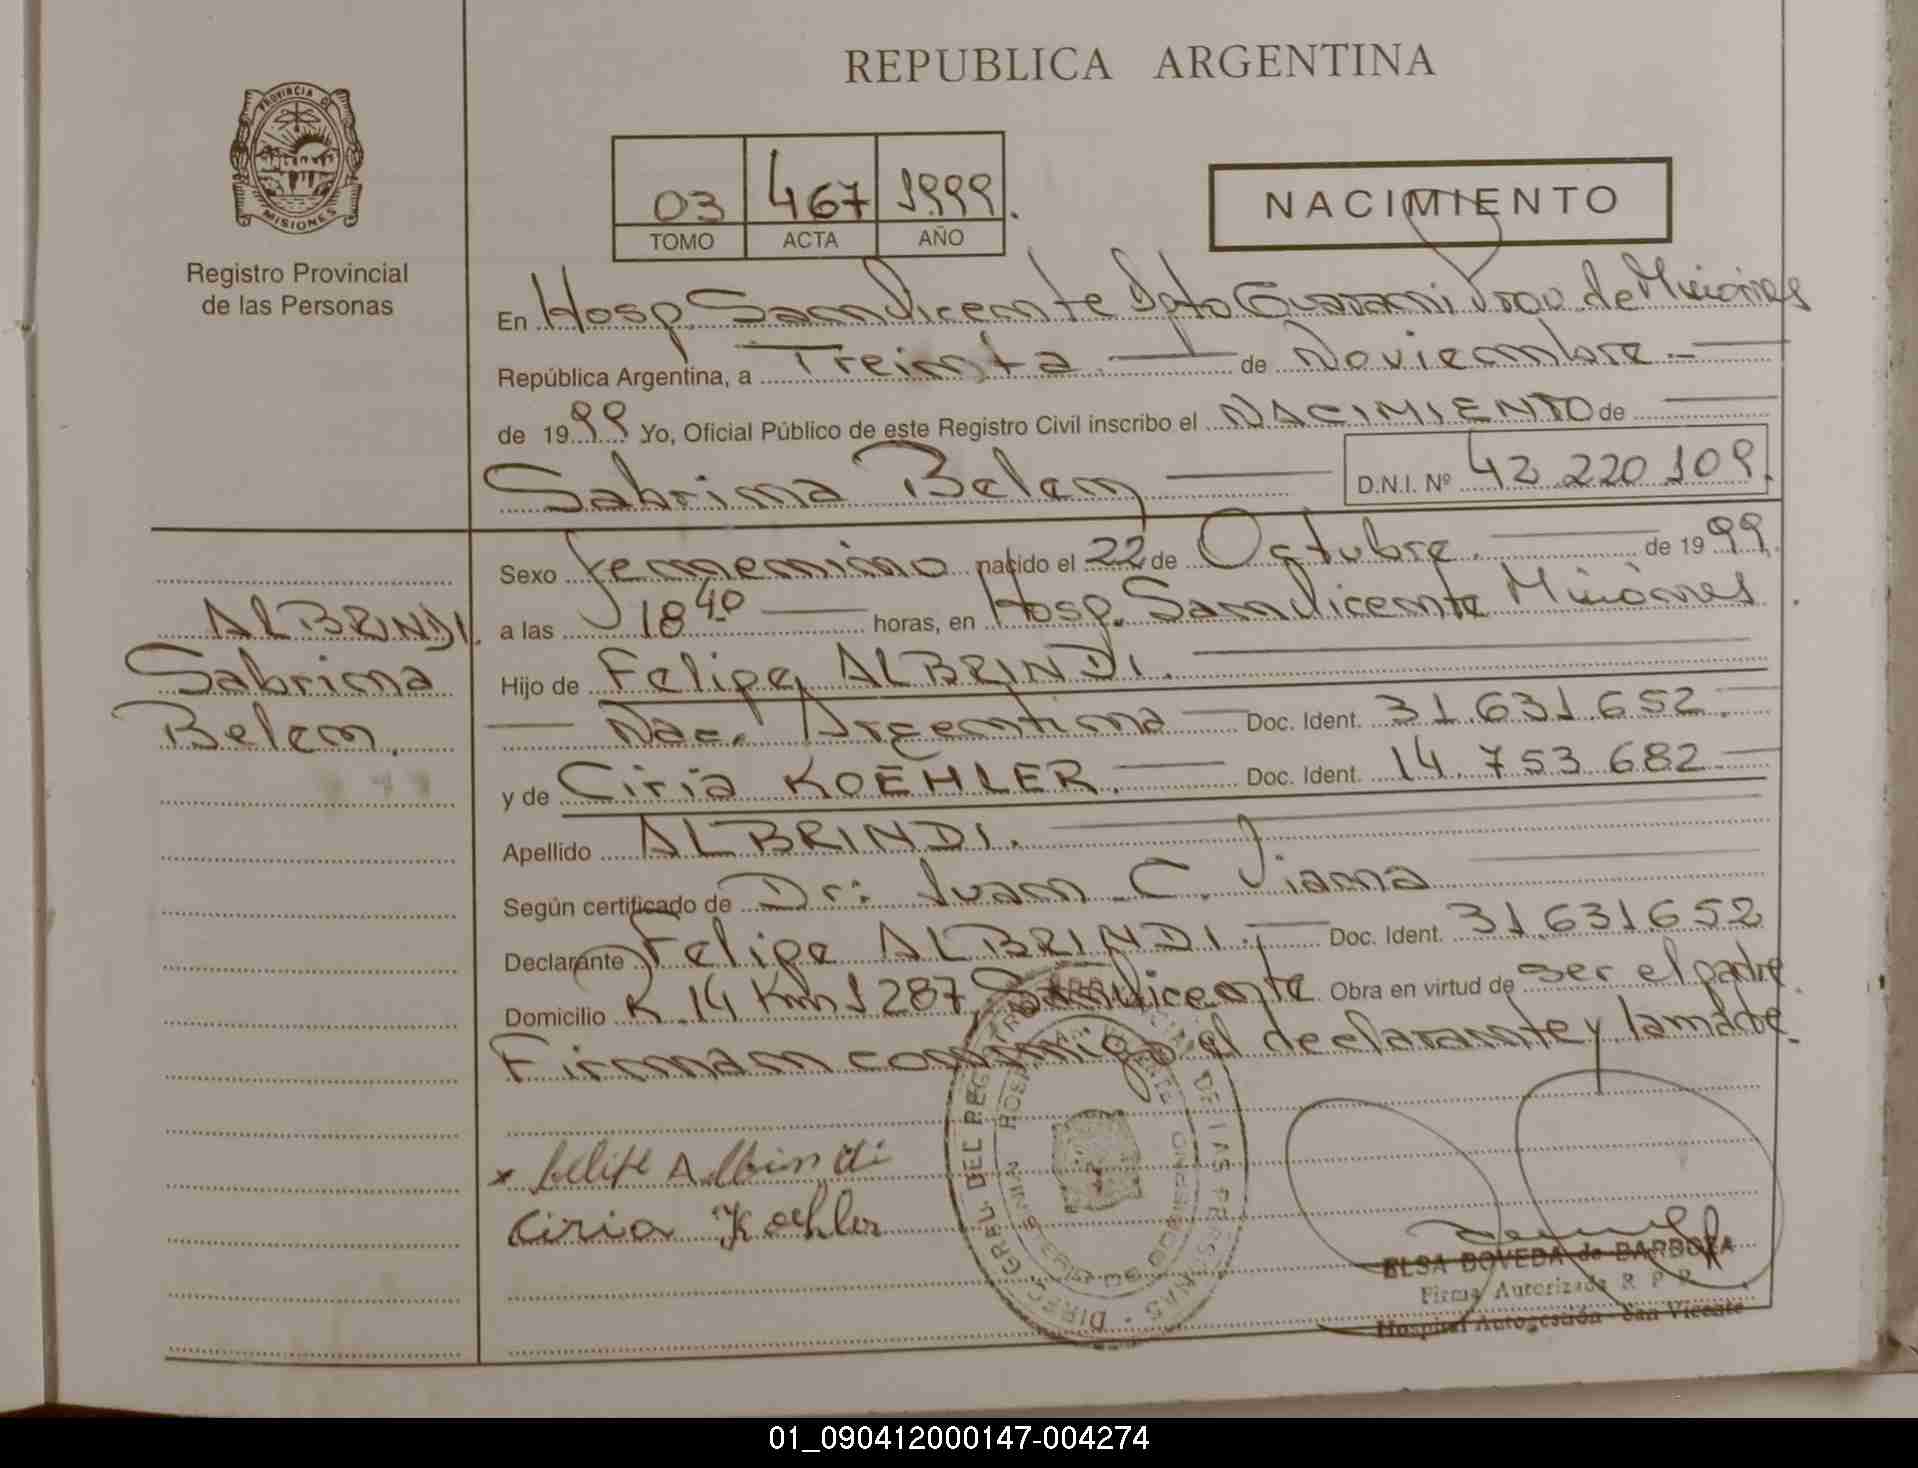 REPUBLICA ARGENTINA
PROVINCIA DE
MISIONES
Registro Provincial
de las Personas
03 467 1999.
TOMO ACTA AÑO
NACIMIENTO
En Hosp. San Vicente Dpto Guarani Prov. de Misiones
República Argentina, a Treinta de Noviembre
de 1999 Yo, Oficial Público de este Registro Civil inscribo el NACIMIENTO de
Sabrina Belen D.N.I. Nº 42.220.109.
Sexo femenino nacido el 22 de Octubre de 1999.
a las 18 40 horas, en Hosp. San Vicente Misiones
Hijo de Felipe ALBRINDI.
Nac. Argentina Doc. Ident. 31.631.652.
y de Ciria KOEHLER. Doc. Ident. 14.753.682
Apellido ALBRINDI.
Según certificado de Dr: Juan C. Viana
Declarante Felipe ALBRINDI. Doc. Ident. 31.631.652
Domicilio R.14 Km 1287, San Vicente Obra en virtud de ser el padre.
Firman conmigo el declarante y la madre.
ALBRINDI.
Sabrina
Belen.
x Felipe Albrindi
Ciria Koehler
ELSA BOVEDA de BARBOZA
Firma Autorizada R P P
Hospital Autogestión - San Vicente
01_090412000147-004274